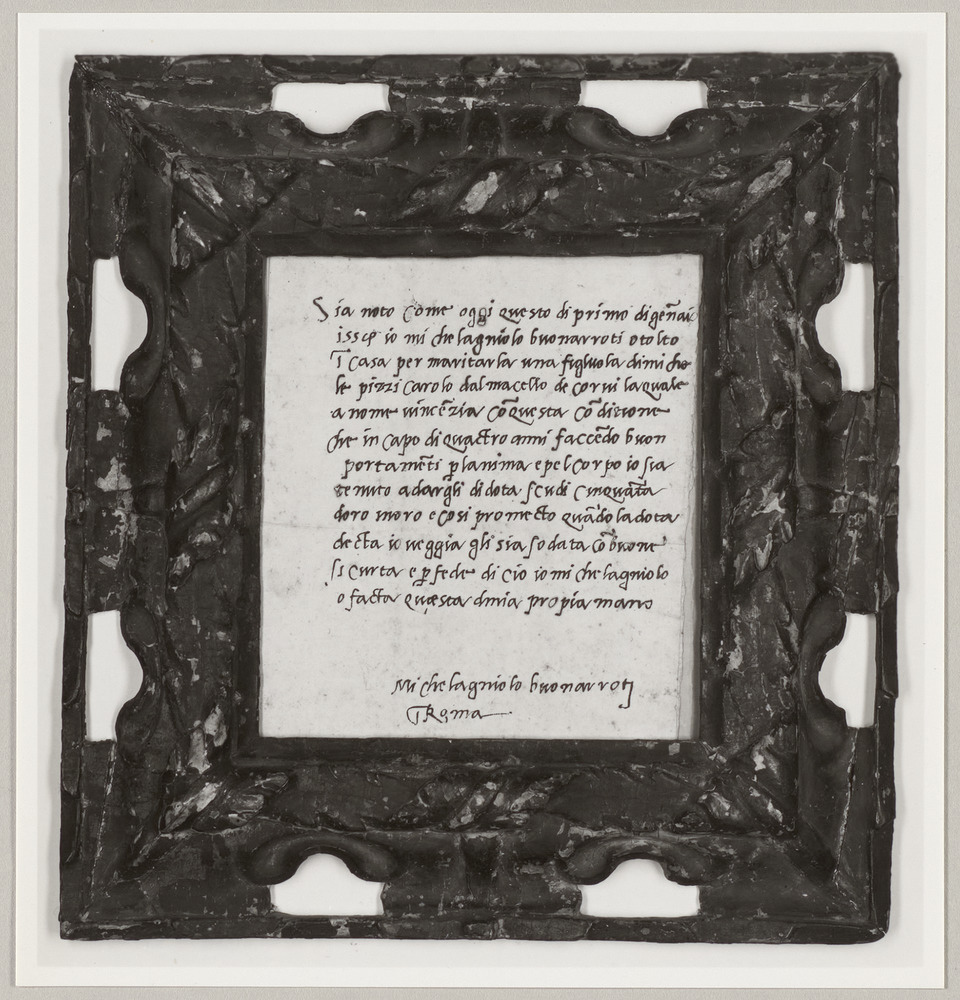 Sia noto come oggi questo di primo di gēnaio
io mi chelagniolo buonarroti o tolto
ī casa per maritarla una figluola di miche
le pizzicarolo dal macello de corvi la quale
a nome vincēzia cō questa cō ditione
che in capo di quactro anni faccēdo buon
portamēti p̱ lanima e pel corpo io sia
tenuto a dargli di dota scudi cinquāta
doro moro e cosi promecto quādo la dota
decta io veggia gli sia sodata cō buone
si curta e p̱ fede di cio io mi chelagniolo
o facta questa dmia propia mano
Mi chelagniolo buonarroti
ī Roma